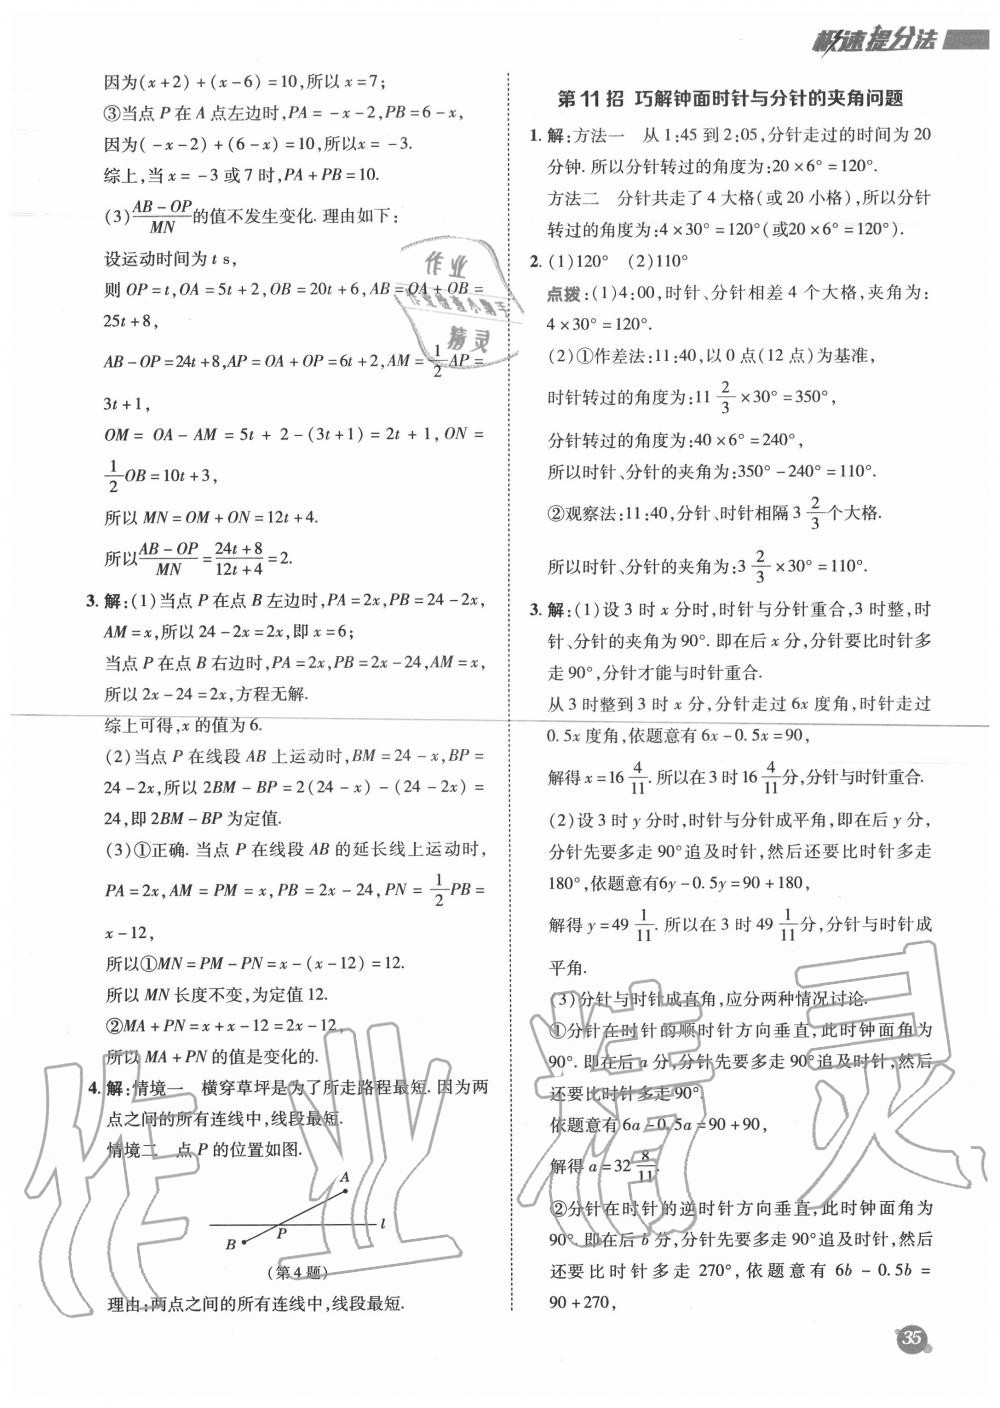 极速提分法
因为(x+2)+(x-6)=10,所以x=7;
③当点P在A点左边时,PA=-x-2,PB=6-x,
因为(-x-2)+(6-x)=10,所以x=-3.
综上,当x=-3或7时,PA+PB=10.
(3)$\frac{AB-OP}{MN}$的值不发生变化. 理由如下:
设运动时间为t s,
则OP=t,OA=5t+2,OB=20t+6,AB=OA+OB=
25t+8,
AB-OP=24t+8,AP=OA+OP=6t+2,AM=$\frac{1}{2}$AP=
3t+1,
OM=OA-AM=5t+2-(3t+1)=2t+1,ON=
$\frac{1}{2}$OB=10t+3,
所以MN=OM+ON=12t+4.
所以$\frac{AB-OP}{MN}$=$\frac{24t+8}{12t+4}$=2.
3. 解:(1)当点P在点B左边时,PA=2x,PB=24-2x,
AM=x,所以24-2x=2x,即x=6;
当点P在点B右边时,PA=2x,PB=2x-24,AM=x,
所以2x-24=2x,方程无解.
综上可得,x的值为6.
(2)当点P在线段AB上运动时,BM=24-x,BP=
24-2x,所以2BM-BP=2(24-x)-(24-2x)=
24,即2BM-BP为定值.
(3)①正确. 当点P在线段AB的延长线上运动时,
PA=2x,AM=PM=x,PB=2x-24,PN=$\frac{1}{2}$PB=
x-12,
所以①MN=PM-PN=x-(x-12)=12.
所以MN长度不变,为定值12.
②MA+PN=x+x-12=2x-12,
所以MA+PN的值是变化的.
4. 解:情境一 横穿草坪是为了所走路程最短. 因为两
点之间的所有连线中,线段最短.
情境二 点P的位置如图.
A
P
l
B
(第4题)
理由:两点之间的所有连线中,线段最短.
第11招 巧解钟面时针与分针的夹角问题
1. 解:方法一 从1:45到2:05,分针走过的时间为20
分钟. 所以分针转过的角度为:20×6°=120°.
方法二 分针共走了4大格(或20小格),所以分针
转过的角度为:4×30°=120°(或20×6°=120°).
2. (1)120° (2)110°
点拨:(1)4:00,时针、分针相差4个大格,夹角为:
4×30°=120°.
(2)①作差法:11:40,以0点(12点)为基准,
时针转过的角度为:11$\frac{2}{3}$×30°=350°,
分针转过的角度为:40×6°=240°,
所以时针、分针的夹角为:350°-240°=110°.
②观察法:11:40,分针、时针相隔3$\frac{2}{3}$个大格.
所以时针、分针的夹角为:3$\frac{2}{3}$×30°=110°.
3. 解:(1)设3时x分时,时针与分针重合,3时整,时
针、分针的夹角为90°. 即在后x分,分针要比时针多
走90°,分针才能与时针重合.
从3时整到3时x分,分针走过6x度角,时针走过
0.5x度角,依题意有6x-0.5x=90,
解得x=16$\frac{4}{11}$. 所以在3时16$\frac{4}{11}$分,分针与时针重合.
(2)设3时y分时,时针与分针成平角,即在后y分,
分针先要多走90°追及时针,然后还要比时针多走
180°,依题意有6y-0.5y=90+180,
解得y=49$\frac{1}{11}$. 所以在3时49$\frac{1}{11}$分,分针与时针成
平角.
(3)分针与时针成直角,应分两种情况讨论.
①分针在时针的顺时针方向垂直,此时钟面角为
90°. 即在后a分,分针先要多走90°追及时针,然后
还要比时针多走90°.
依题意有6a-0.5a=90+90,
解得a=32$\frac{8}{11}$.
②分针在时针的逆时针方向垂直,此时钟面角为
90°. 即在后b分,分针先要多走90°追及时针,然后
还要比时针多走270°,依题意有6b-0.5b=
90+270,
35
作业
作业检查小助手
精灵
作业精灵